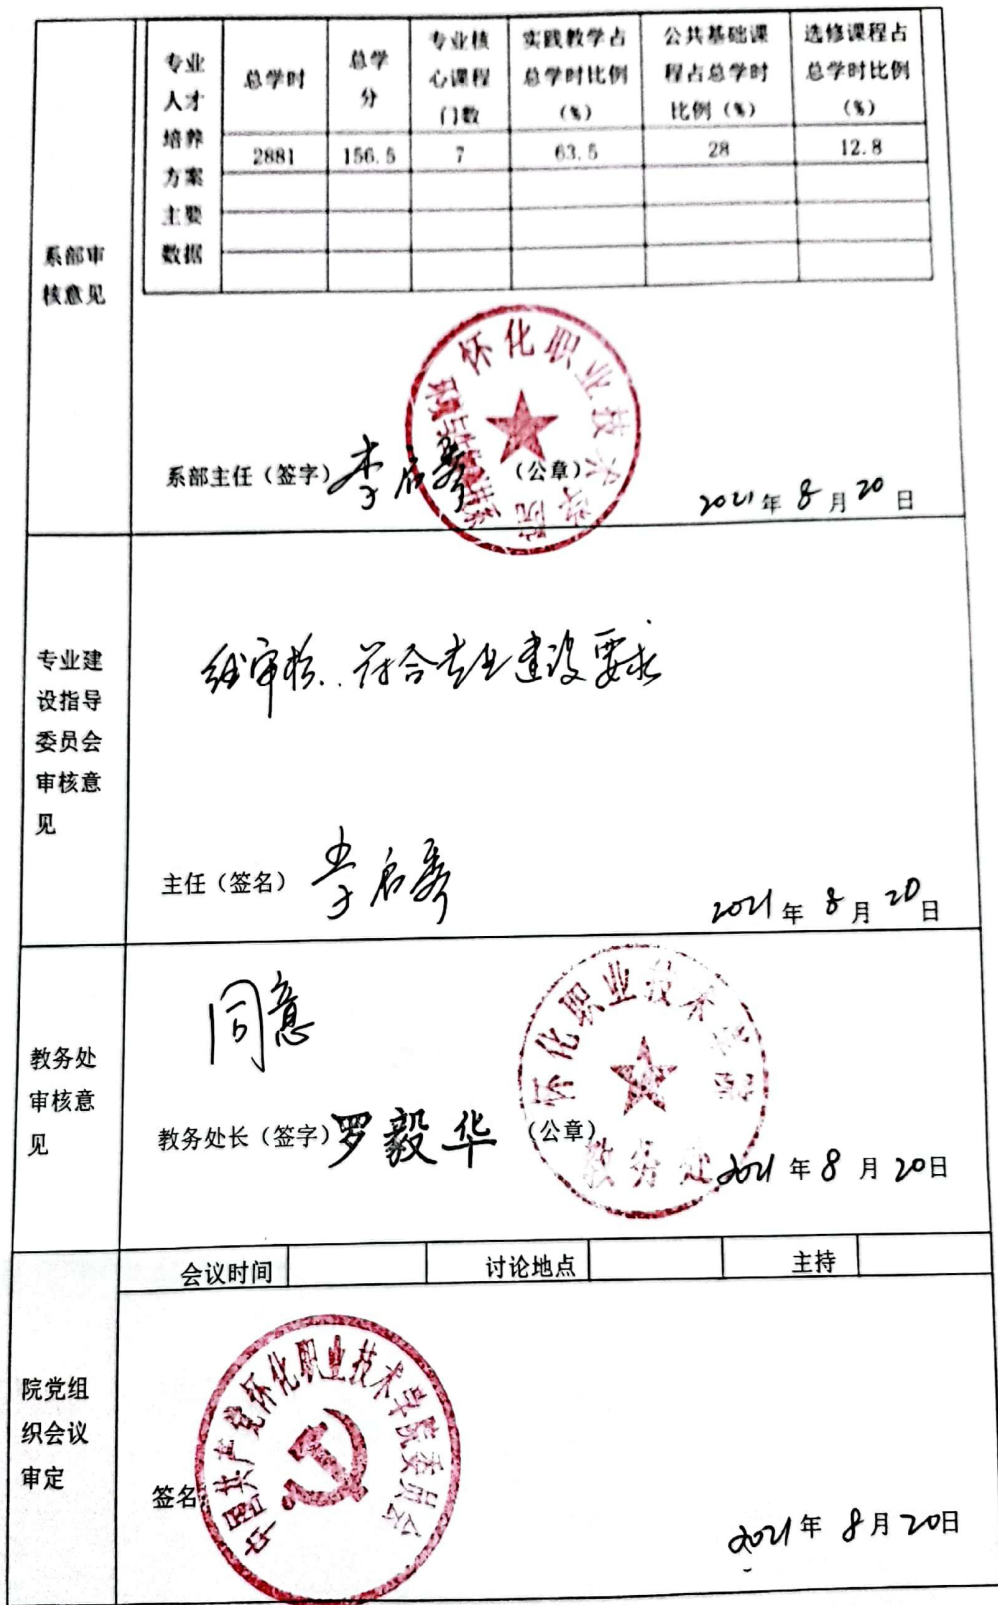 专业人才培养方案主要数据
总学时
总学分
专业核心课程门数
实践教学占总学时比例（%）
公共基础课程占总学时比例（%）
选修课程占总学时比例（%）
2881
156.5
7
63.5
28
12.8
系部审核意见
怀化职业技术学院
系部主任（签字）
（公章）
2021年8月20日
专业建设指导委员会审核意见
经审核.符合专业建设要求
主任（签名）
2021年8月20日
教务处审核意见
同意
怀化职业技术学院
教务处
教务处长（签字）罗毅华（公章）
2021年8月20日
院党组织会议审定
会议时间
讨论地点
主持
中国共产党怀化职业技术学院委员会
签名
2021年8月20日